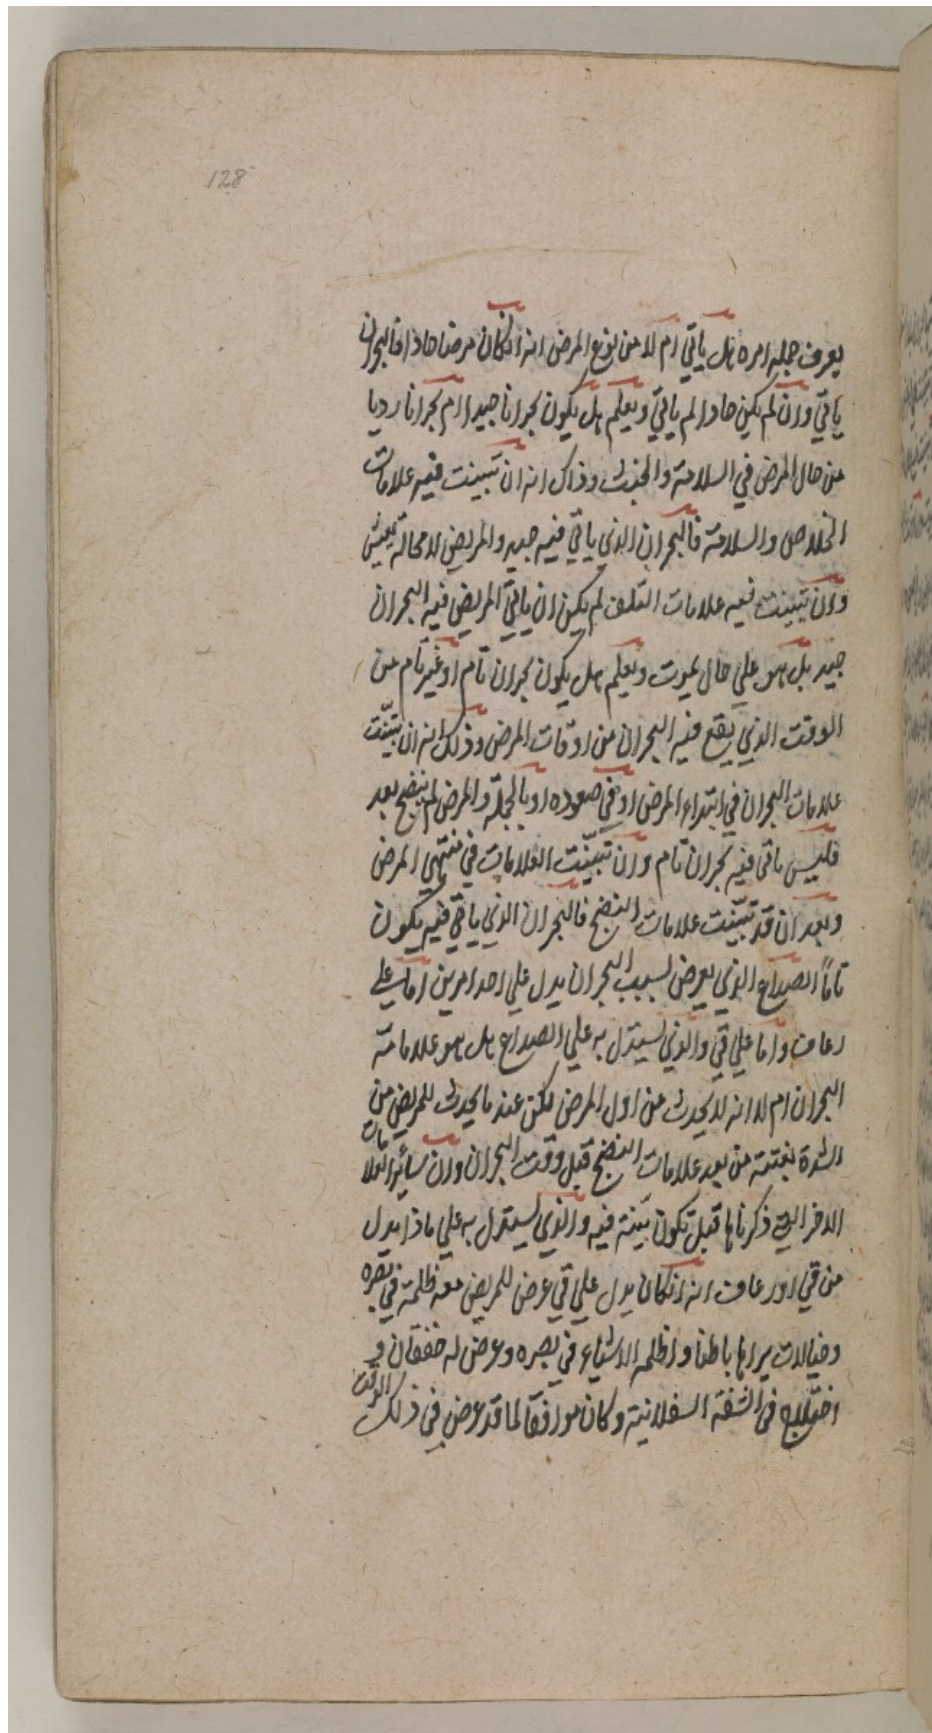 128
يعرف جملة امره هل ياتي ام لا من نوع المرض انه انكان مرضا حادا فالبحران
ياتي وان لم يكن حادا لم ياتي ويعلم هل يكون بحرانا جيدا ام بحرانا رديا
من حال المرض في السلامة والخبث وذاك انه ان تبينت فيه علامات
الخلاص والسلامة فالبحران الذي ياتي فيه جيد والمريض لا محالة يعيش
وان تبينت فيه علامات التلف لم يكن ان ياتي المريض فيه البحران
جيد بل هو علي حال يموت ويعلم هل يكون بحران تام او غير تام من
الوقت الذي يقع فيه البحران من اوقات المرض وذلك انه ان تبيّنت
علامات البحران في ابتداء المرض او في صعوده او بالجملة والمرض لم ينضج بعد
فليس ياتي فيه بحران تام وان تبيّنت العلامات في منتهي المرض
وبعد ان قد تبيّنت علامات النضج فالبحران الذي ياتي فيه يكون
تاماً الصداع الذي يعرض لسبب البحران يدل علي احد امرين اما علي
رعاف واما علي قي والذي يستدل به علي الصداع هل هو علامة
البحران ام لا انه لا يحدث من اول المرض لكن عند ما يحدث للمريض من
الشدة بغتة من بعد علامات النضج قبل وقت البحران وان سائر العلامات
الاخر التي ذكرناها قبل تكون بيّنة فيه والذي يستدل به علي ماذا يدل
من قي او رعاف انه انكان يدل علي قي عرض للمريض معه ظلمة في بصره
وخيالات يراها باطنا واظلمه الاشياء في بصره وعرض له خفقان و
اختلاج في الشفة السفلانية وكان موافقا لما قد عرض في ذلك الوقت